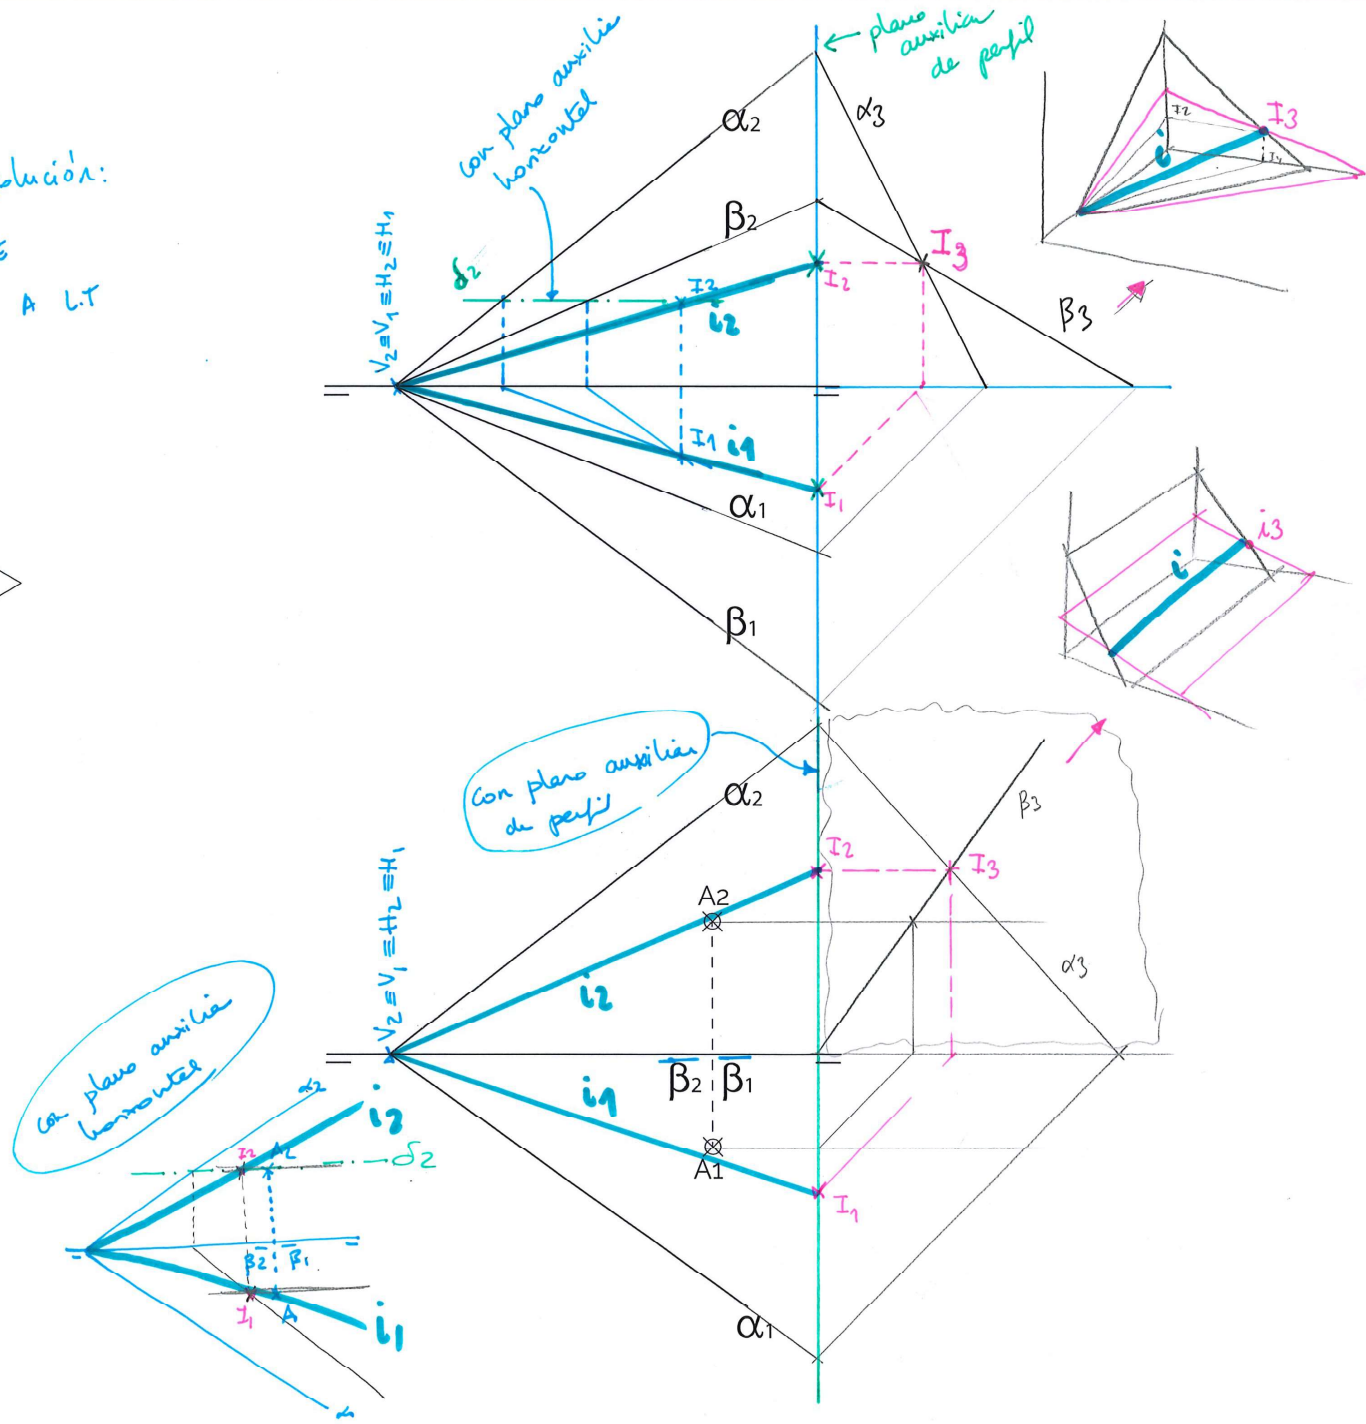 olución:
A L.T
con plano auxiliar
horizontal
← plano
auxiliar
de perfil
α2
α3
β2
V2≡V1≡H2≡H1
δ2
I2
i2
I2
I3
β3
I2
I3
i
I1
I1
i1
I1
α1
β1
i3
i
con plano auxiliar
de perfil
α2
β3
I2
I3
A2
V2≡V1≡H2≡H1
i2
α3
β2 β1
i1
A1
I1
α1
con plano auxiliar
horizontal
α2
i2
I2
A2
δ2
β2 β1
I1
A
i1